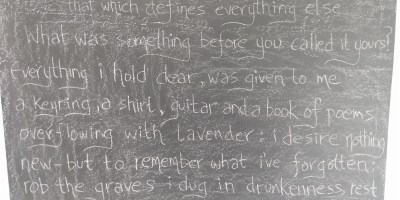 that which defines everything else
What was something before you called it yours?
Everything i hold dear, was given to me
a keyring, a shirt, guitar and a book of poems
overflowing with Lavender: i desire nothing
new - but to remember what i've forgotten;
rob the graves i dug in drunkenness, rest